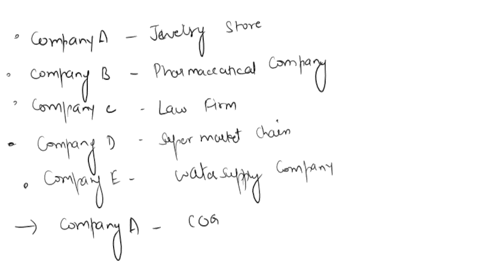 • Company A - Jewelry Store
• Company B - Pharmaceutical Company
• Company C - Law Firm
• Company D - Super market Chain
• Company E - Water supply Company
→ Company A - COG